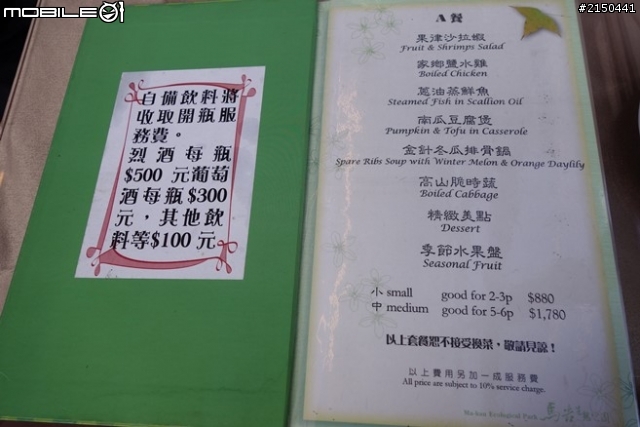 MOBILE01
#2150441
自備飲料將
收取開瓶服
務費。
烈酒每瓶
$500元葡萄
酒每瓶$300
元，其他飲
料等$100元
A 餐
果律沙拉蝦
Fruit & Shrimps Salad
家鄉鹽水雞
Boiled Chicken
蔥油蒸鮮魚
Steamed Fish in Scallion Oil
南瓜豆腐煲
Pumpkin & Tofu in Casserole
金針冬瓜排骨鍋
Spare Ribs Soup with Winter Melon & Orange Daylily
高山脆時蔬
Boiled Cabbage
精緻美點
Dessert
季節水果盤
Seasonal Fruit
小 small good for 2-3p $880
中 medium good for 5-6p $1,780
以上套餐恕不接受換菜，敬請見諒！
以上費用另加一成服務費
All price are subject to 10% service charge.
Ecological Park